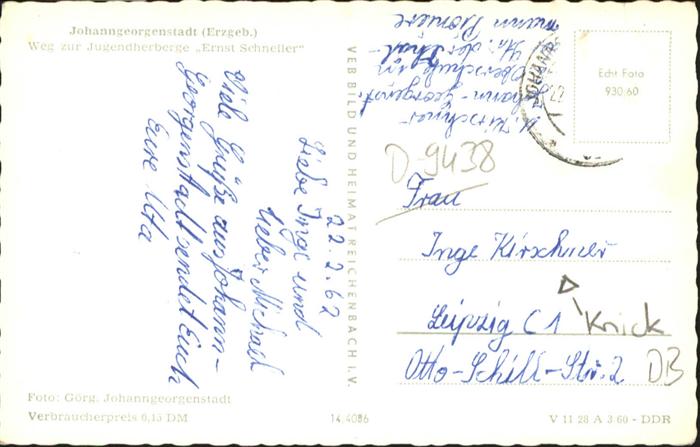 Johanngeorgenstadt (Erzgeb.)
Weg zur Jugendherberge „Ernst Schneller"
22.2.62
Liebe Inge und
lieber Michael
Viele Grüße aus Johann-
Georgenstadt sendet Euch
Eure Uta
Foto: Görg. Johanngeorgenstadt
Verbraucherpreis 0,15 DM
VEB BILD UND HEIMAT REICHENBACH I. V.
14.4086
U. Kirschner
Johann-Georgenst.
Oberschule
Str. der
Echt Foto
930/60
D-9438
Frau
Inge Kirschner
Leipzig C1
Knick
Otto-Schill-Str. 2
DB
V 11 28 A 3 60 - DDR